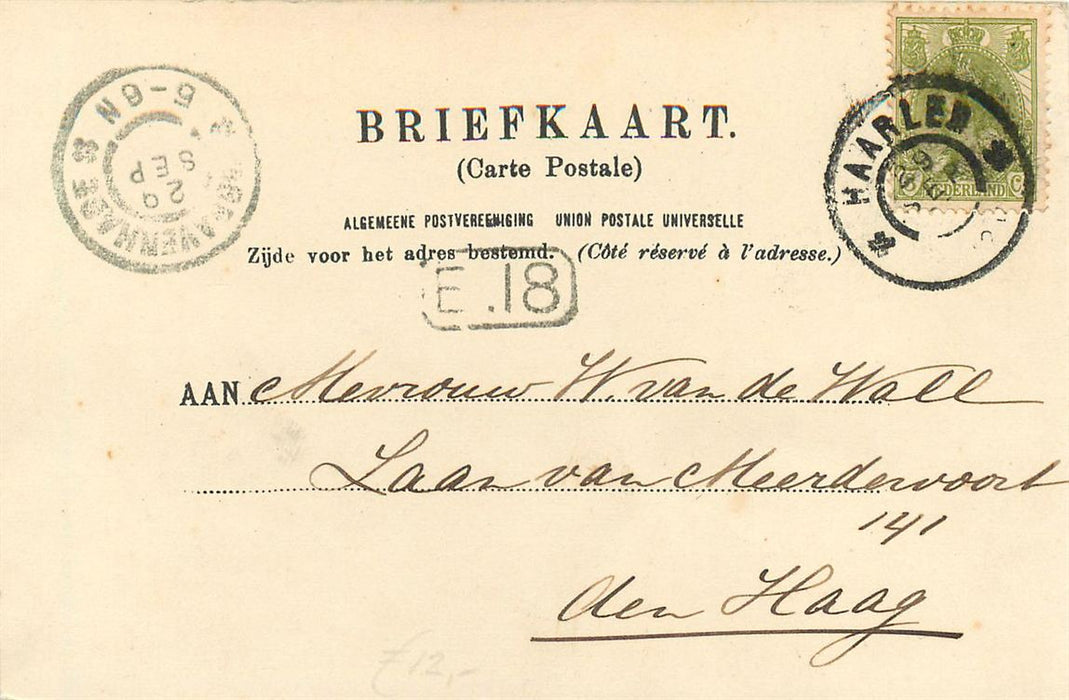 BRIEFKAART.
(Carte Postale)
ALGEMEENE POSTVEREENIGING UNION POSTALE UNIVERSELLE
Zijde voor het adres bestemd. (Côté réservé à l'adresse.)
E.18
HAARLEM
NEDERLAND
5-6N
29
SEP
AAN Mevrouw W. van de Wall
Laan van Meerdervoort
141
den Haag
f 12,-